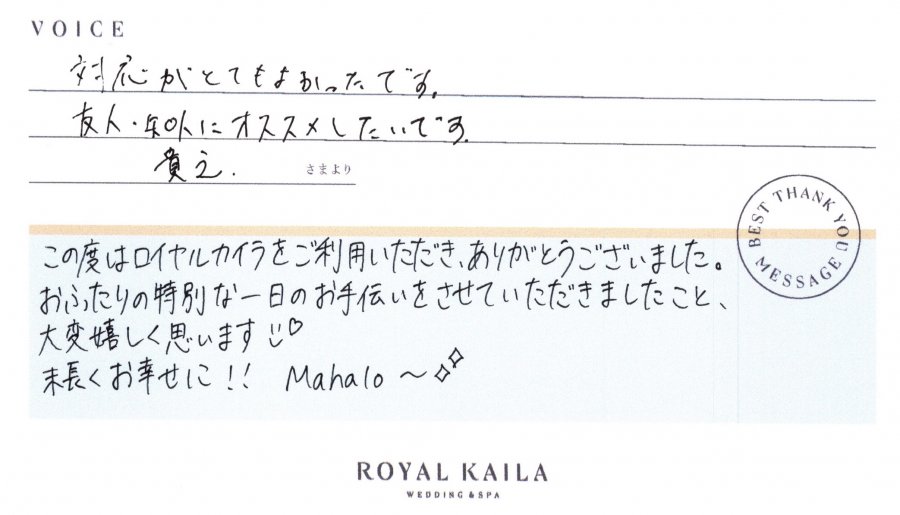 VOICE
対応がとてもよかったです。
友人・知人にオススメしたいです。
貴之. さまより
BEST THANK YOU MESSAGE
この度はロイヤルカイラをご利用いただき、ありがとうございました。
おふたりの特別な一日のお手伝いをさせていただきましたこと、
大変嬉しく思います♡
末長くお幸せに!! Mahalo~
ROYAL KAILA
WEDDING & SPA